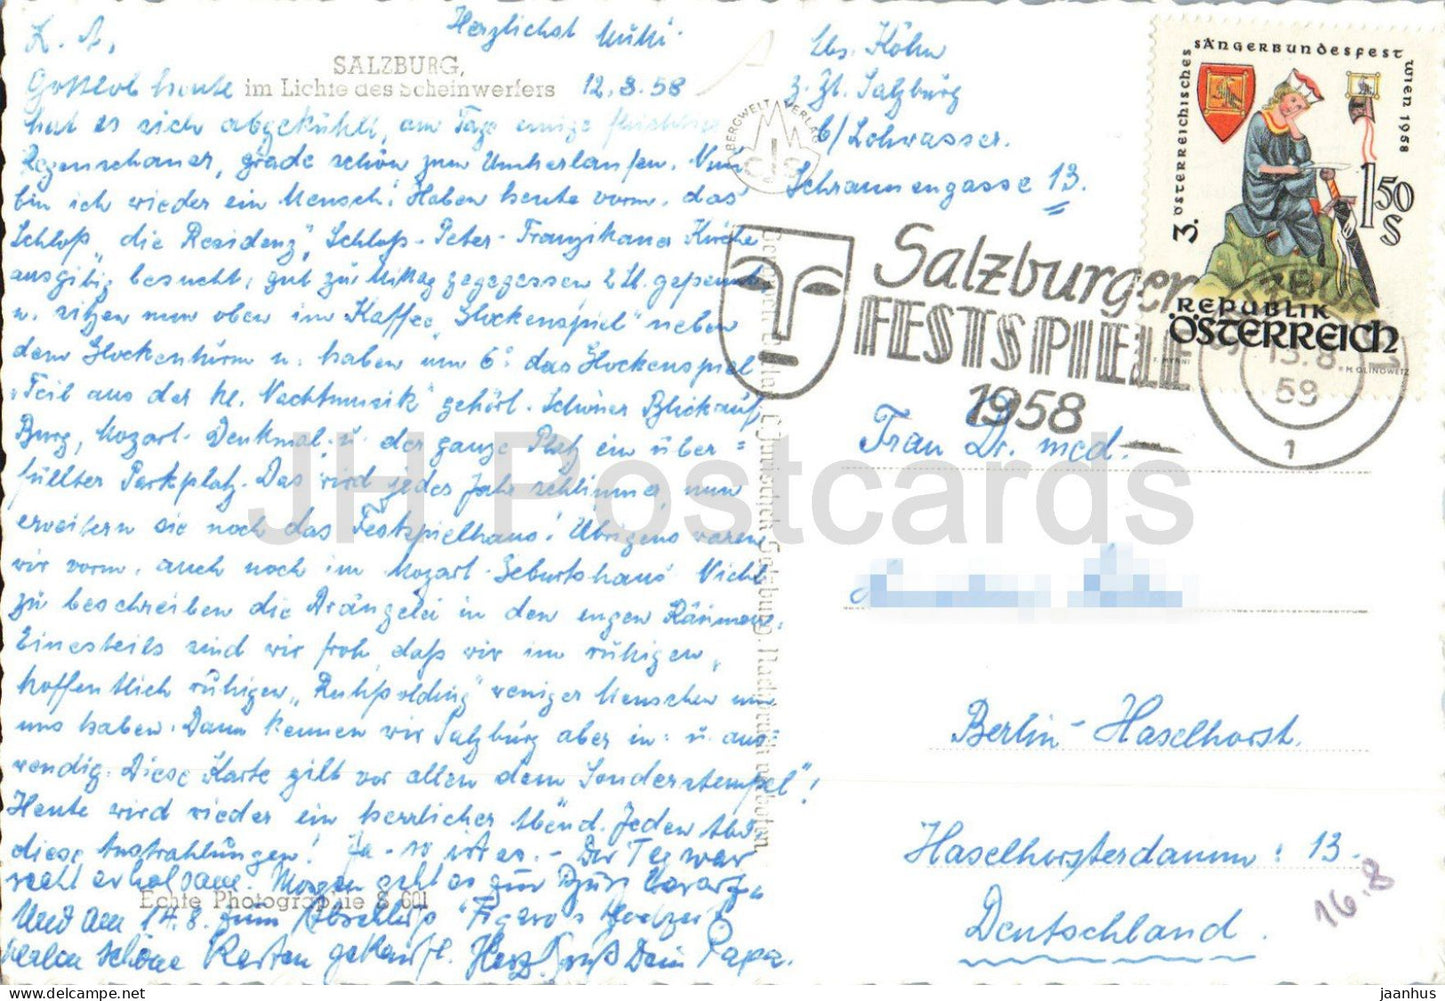 Herzlichst Mutti.
L. A,
SALZBURG,
im Lichte des Scheinwerfers
12.8.58
Gottlob heute
hat es sich abgekühlt, am Tage einige
Regenschauer, grade schön zum Umherlaufen. Nun
bin ich wieder ein Mensch! Haben heute vorm. das
Schloß „die Residenz", Schloß-Peter-Franzikaner Kirche
ausgibig besucht, gut zu Mittag gegegessen 2 St. gepennt
u. sitzen nun oben im Kaffee „Glockenspiel" neben
dem Glockentürm u. haben um 6° das Glockenspiel
„Teil aus der kl. Nachtmusik" gehört. Schöner Blick auf
Burg, Mozart-Denkmal u. der ganze Platz ein über=
füllter Parkplatz. Das wird jedes Jahr schlimmer, nun
erweitern sie noch das Festspielhaus! Übrigens waren
wir vorm. auch noch im Mozart-Geburtshaus. Nicht
zu beschreiben die Drängelei in den engen Räumen.
Einesteils sind wir froh, daß wir im ruhigen,
hoffentlich ruhigen „Ruhpolding" weniger Menschen um
uns haben. Dann kennen wir Salzburg aber in- u. aus-
wendig. Diese Karte gilt vor allen dem „Sonderstempel"!
Heute wird wieder ein herrlicher Abend. Jeden Abd
diese Anstrahlungen! Ja - so ist es. - Der Tag war
recht erholsam. Morgen geht es zur
Und am 14.8. zum Abschluß "Figaro's Hochzeit
schöne Karten gekauft. Herzl. Gruß Dein Papa.
Echte Photographie S 601
BERGWELT VERLAG
cJs
Nachdruck verboten
Abs. Köhn
z. Zt. Salzburg
b/ Lohwasser.
Schrannengasse 13.
3. ÖSTERREICHISCHES SÄNGERBUNDESFEST WIEN 1958
1.50 S
REPUBLIK
ÖSTERREICH
Salzburger
FESTSPIELE
1958
13.8
58
1
Frau Dr. med.
Berlin-Haselhorst.
Haselhorsterdamm: 13.
Deutschland.
16.8
JH Postcards
www.delcampe.net
jaanhus